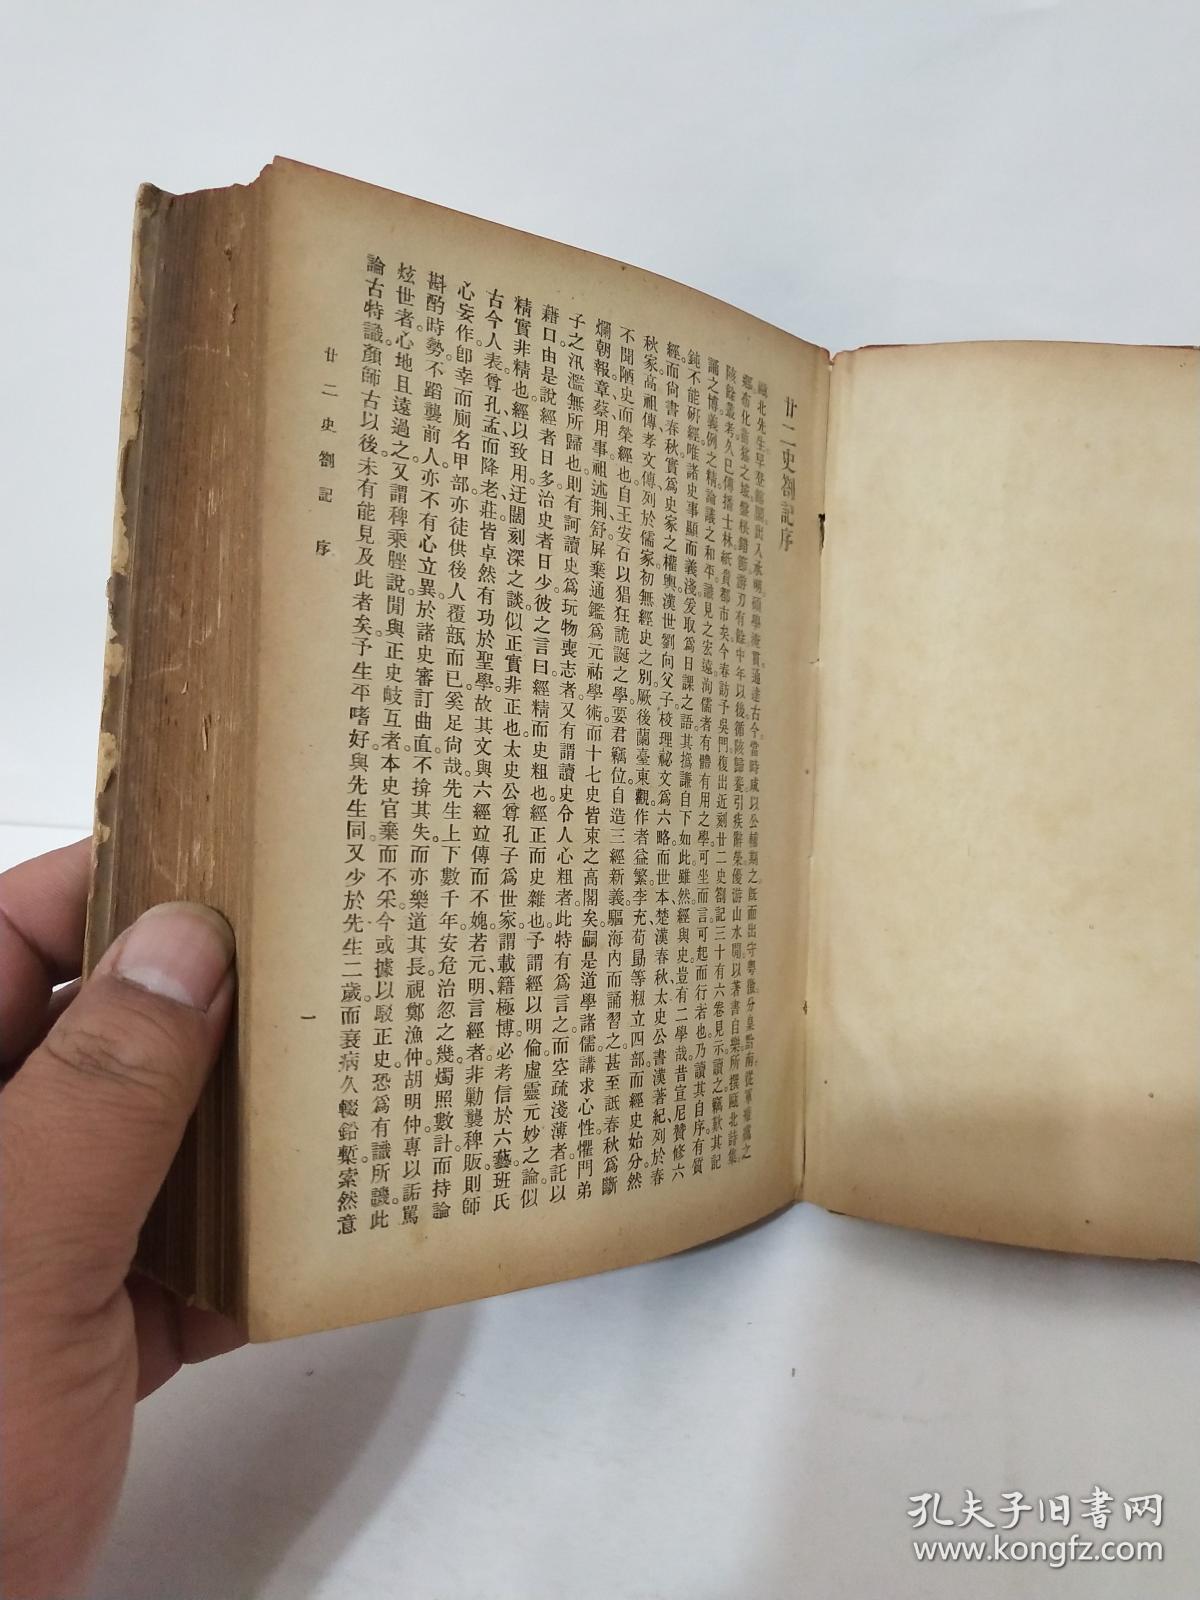 廿二史劄記序
甌北先生早登館閣。出入承明。碩學淹貫。通達古今。當時咸以公輔期之。旣而出守粵徼。分臬黔南。從軍
布化之中年以後。循陔歸養。引疾辭榮。優游山水閒。以著書自樂。所撰甌北詩集。
陔餘叢考。久已傳播士林。紙貴都市矣。今春訪予吳門。復出近刻廿二史劄記三十有六卷見示。讀之竊歎其記
誦之博。義例之精。論議之和平。識見之宏遠。洵儒者有體有用之學。可坐而言可起而行者也。乃讀其自序有質
鈍不能硏經。唯諸史事顯而義淺。爰取爲日課之語。其撝謙自下如此。雖然經與史豈有二學哉。昔宣尼贊修六
經。而尙書春秋。實爲史家之權輿。漢世劉向父子。校理祕文爲六略。而世本。楚漢春秋。太史公書。漢著紀。列於春
秋家。高祖傳。孝文傳。列於儒家。初無經史之別。厥後蘭臺東觀。作者益繁。李充荀勗等。剏立四部。而經史始分。然
不聞陋史而榮經也。自王安石以猖狂詭誕之學。要君竊位。自造三經新義。驅海內而誦習之。甚至詆春秋爲斷
爛朝報。章蔡用事。祖述荆舒。屛棄通鑑爲元祐學術。而十七史皆束之高閣矣。嗣是道學諸儒。講求心性。懼門弟
子之汎濫無所歸也。則有訶讀史爲玩物喪志者。又有謂讀史令人心粗者。此特有爲言之。而空疏淺薄者。託以
藉口。由是說經者日多。治史者日少。彼之言曰。經精而史粗也。經正而史雜也。予謂經以明倫。虛靈元妙之論。似
精實非精也。經以致用。迂闊刻深之談。似正實非正也。太史公尊孔子爲世家。謂載籍極博。必考信於六藝。班氏
古今人表。尊孔孟而降老莊。皆卓然有功於聖學。故其文與六經竝傳而不媿。若元明言經者。非勦襲稗販。則師
心妄作。卽幸而厠名甲部。亦徒供後人覆瓿而已。奚足尙哉。先生上下數千年。安危治忽之幾。燭照數計。而持論
斟酌時勢。不蹈襲前人。亦不有心立異。於諸史審訂曲直。不揜其失。而亦樂道其長。視鄭漁仲胡明仲專以詬罵
炫世者。心地且遠過之。又謂稗乘脞說。閒與正史岐互者。本史官棄而不采。今或據以駁正史。恐爲有識所譏。此
論古特識。顏師古以後。未有能見及此者矣。予生平嗜好與先生同。又少於先生二歲。而衰病久輟鉛槧。索然意
廿二史劄記 序
一
孔夫子旧书网
www.kongfz.com